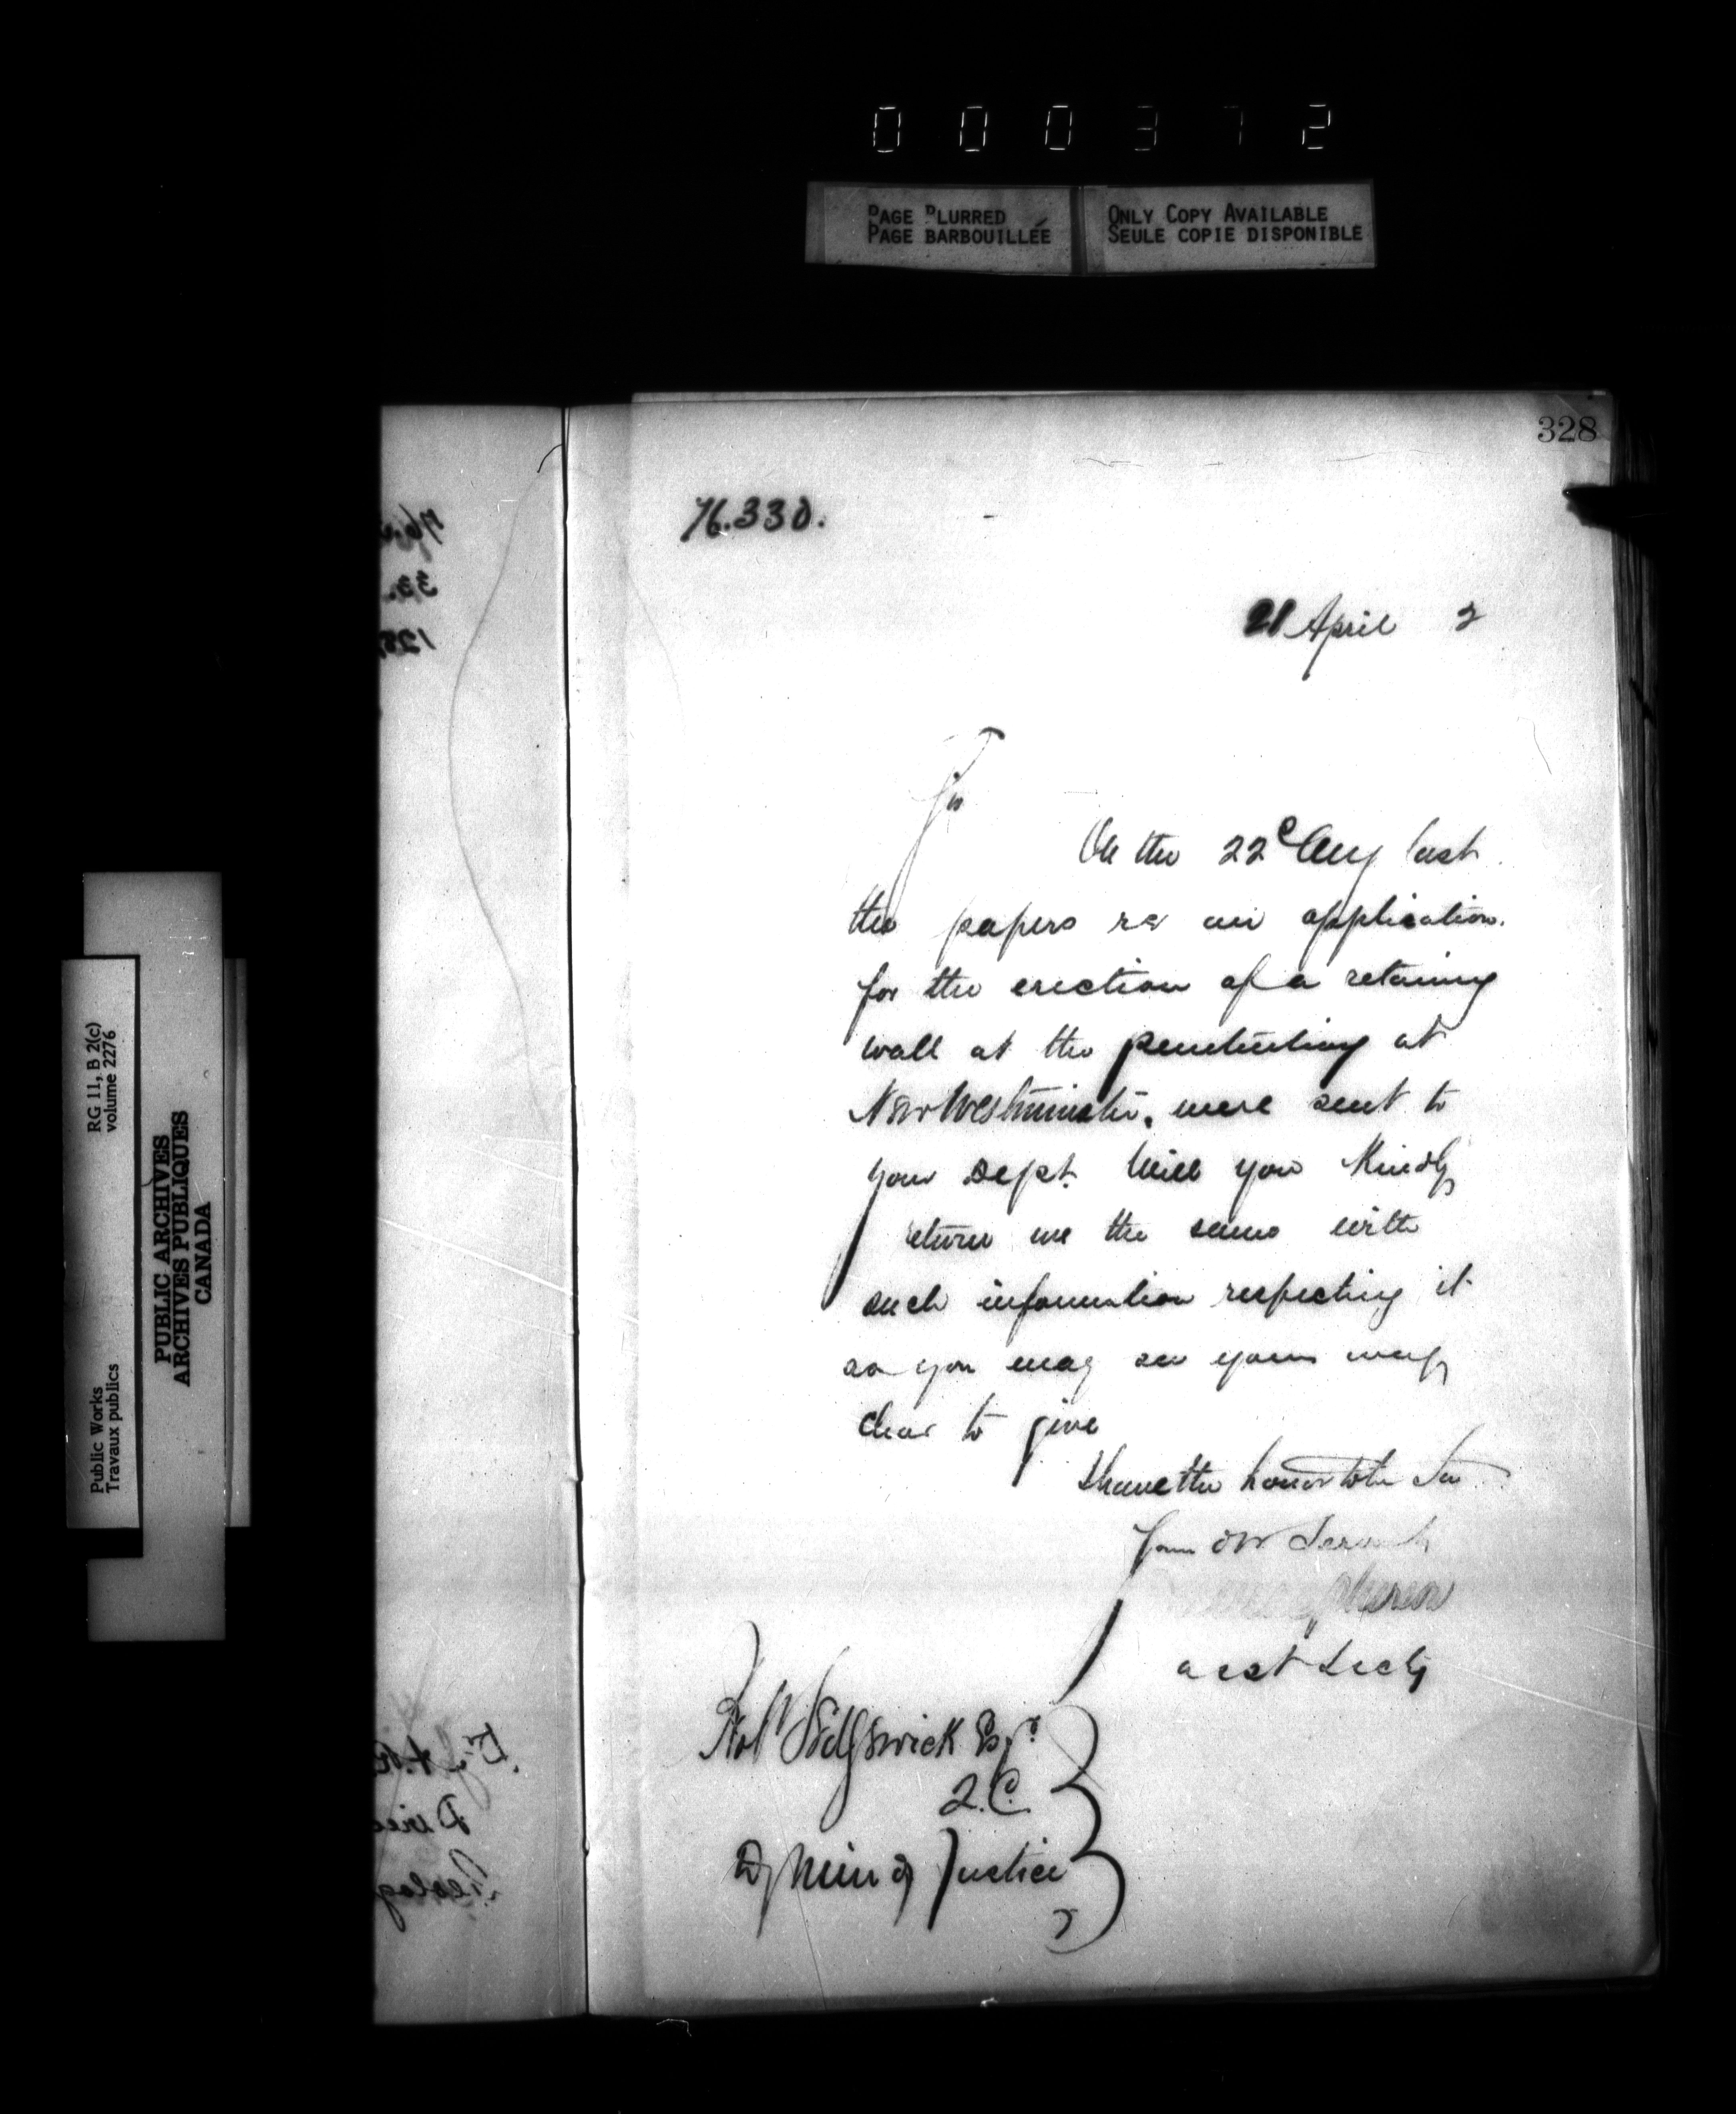 0 0 0 3 7 2
PAGE BLURRED
PAGE BARBOUILLÉE
ONLY COPY AVAILABLE
SEULE COPIE DISPONIBLE
328
76.330.
21 April 2
Sir
On the 22d Aug last
the papers re an application
for the erection of a retaining
wall at the penitentiary at
New Westminster, were sent to
your Dept. Will you Kindly
return me the same with
such information respecting it
as you may see your way
clear to give
I have the honor to be Sir
Your Ob Servant
asst Secy
Robt Sedgewick Esqr
Q.C.
Dy Min of Justice
RG 11, B 2(c)
volume 2276
Public Works
Travaux publics
PUBLIC ARCHIVES
ARCHIVES PUBLIQUES
CANADA